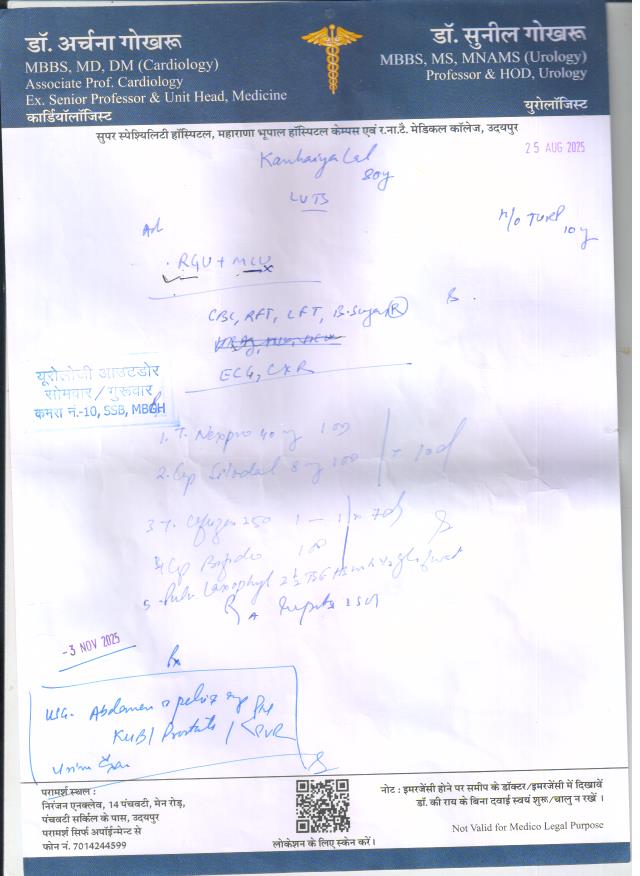 डॉ. अर्चना गोखरू
MBBS, MD, DM (Cardiology)
Associate Prof. Cardiology
Ex. Senior Professor & Unit Head, Medicine
कार्डियॉलॉजिस्ट
डॉ. सुनील गोखरू
MBBS, MS, MNAMS (Urology)
Professor & HOD, Urology
यूरोलॉजिस्ट
सुपर स्पेश्यिलिटी हॉस्पिटल, महाराणा भूपाल हॉस्पिटल केम्पस एवं र.ना.टै. मेडिकल कॉलेज, उदयपुर
25 AUG 2025
Kanhaiya Lal
80y
LUTS
H/o TURP 10y
Ad
RGU + MCU
CBC, RFT, LFT, B.Sugar R
ECG, CXR
यूरोलोजी आउटडोर
सोमवार / गुरूवार
कमरा नं.-10, SSB, MBGH
1. T. Nexpro 40 mg 1 OD
2. Cap Silodal 8 mg 1 OD x 10d
3 T. 250 1 - 1 x 7d
4 Cap 1 OD
5.
-3 NOV 2025
Rx
USG. Abdomen & pelvis
KUB / Prostate / PVR
परामर्श स्थल :
निरंजन एनक्लेव, 14 पंचवटी, मेन रोड़,
पंचवटी सर्किल के पास, उदयपुर
परामर्श सिर्फ अपॉईन्मेन्ट से
फोन नं. 7014244599
लोकेशन के लिए स्केन करें।
नोट : इमरजेंसी होने पर समीप के डॉक्टर/इमरजेंसी में दिखावें
डॉ. की राय के बिना दवाई स्वयं शुरू/चालु न रखें ।
Not Valid for Medico Legal Purpose